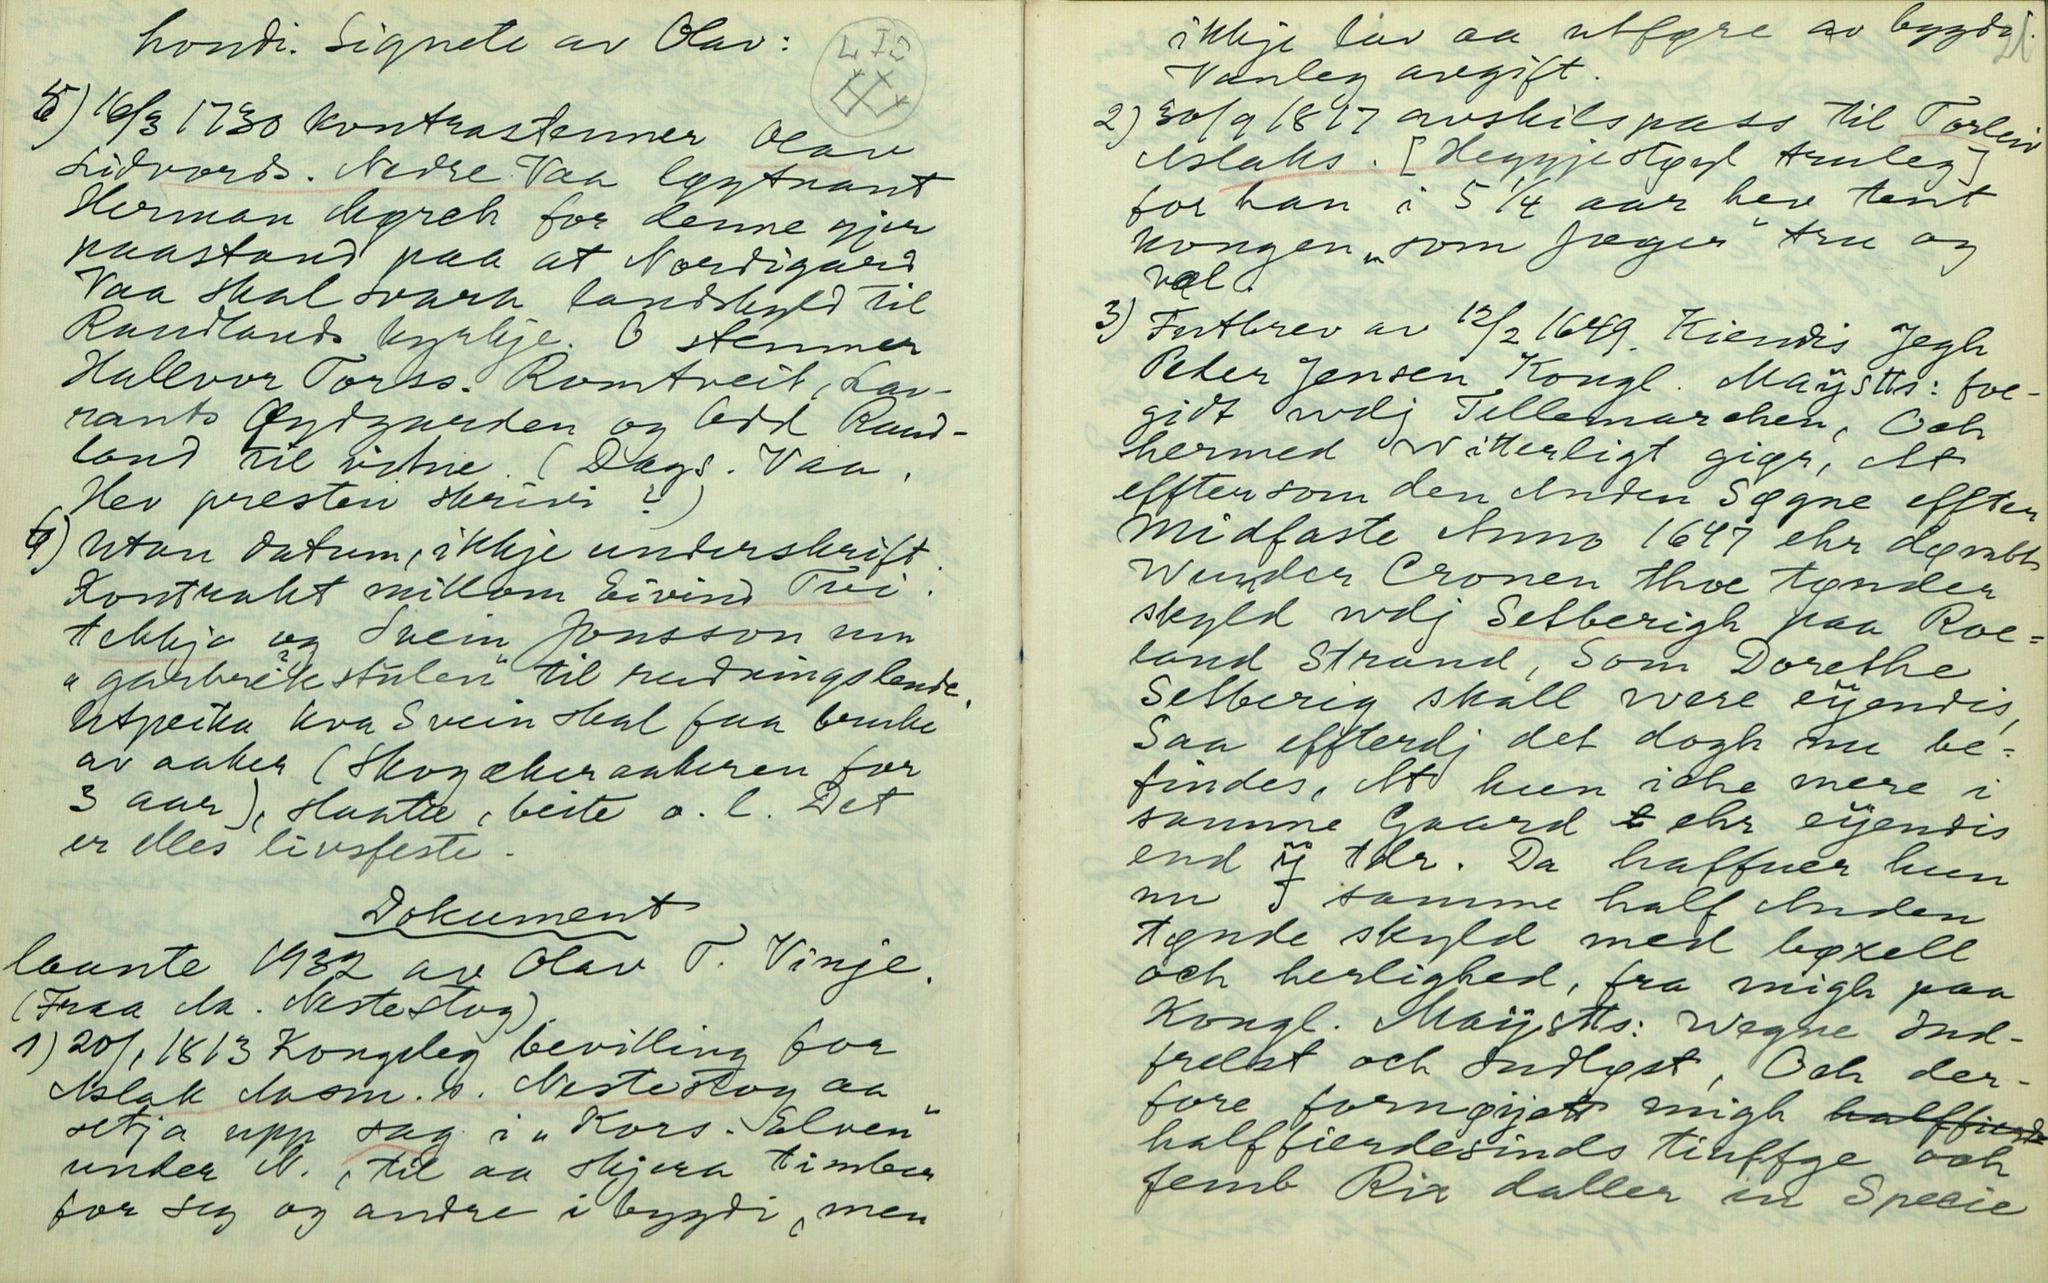 hondi. Signete av Olav:
5) 16/3 1730 kontrastemner Olav
Sidvords. Nedre Vaa løytnant
Herman Mørch for denne gjer
paastand paa at Nordigard
Vaa skal svara landskyld til
Raudlands kyrkje. O stemner
Hallvor Torss. Romtveit, Lav-
rants Øydgarden og Odd Raud-
land til vitne. (Dags. Vaa.
Hev presten skrivi?)
6) Utan datum, ikkje underskrift.
Kontrakt millom Eivind Tvi-
tekkja og Svein Jonsson um
"garbrekkstulen" til rudningslende.
Utpeika kva Svein skal faa bruke
av aaker (Skogækeraakeren for
3 aar), slaatte, beite o. l. Det
er elles livsfeste.
Dokument
laante 1932 av Olav T. Vinje.
(Fraa Aa. Nestestog).
1) 20/1 1813 Kongeleg bevilling for
Aslak Aasm. s. Nestestog aa
setja upp sag i "Kors-Elven"
under N., til aa skjera timber
for seg og andre i bygdi, men
ikkje lov aa utføre av bygdi.
Vanleg avgift.
2) 30/9 1817 avskilspass til Torleiv
Aslaks. [Heggjestøyl truleg]
for han i 5 1/4 aar hev tent
kongen "som Jæger" tru og
vel.
3) Futbrev av 12/2 1649. Kiendis Jegh
Peder Jensen Kongl. Maÿstts: foe-
gidt wdj Tellemarchen, Och
hermed Witterligt giør, At
efftersom den Anden Søgne effter
Midfaste Anno 1647 ehr dømbt
Wunder Cronen thoe tønder
skyld wdj Selberigh paa Roe=
land Strand, Som Dorethe
Selberig skall were eÿendis,
Saa effterdj det dogh nu be=
findes, At hun iche mere i
samme Gaard ehr eÿendis
end ij tdr. Da haffuer hun
nu I samme half Anden
tønde skyld med bøxell
och herlighed, fra migh paa
Kongl. Maÿstts: Wegne Ind-
frelst och Indløst, Och der-
fore fornøÿett migh halffierde
halffierdesinds tiuffge och
femb Rix daller in Specie